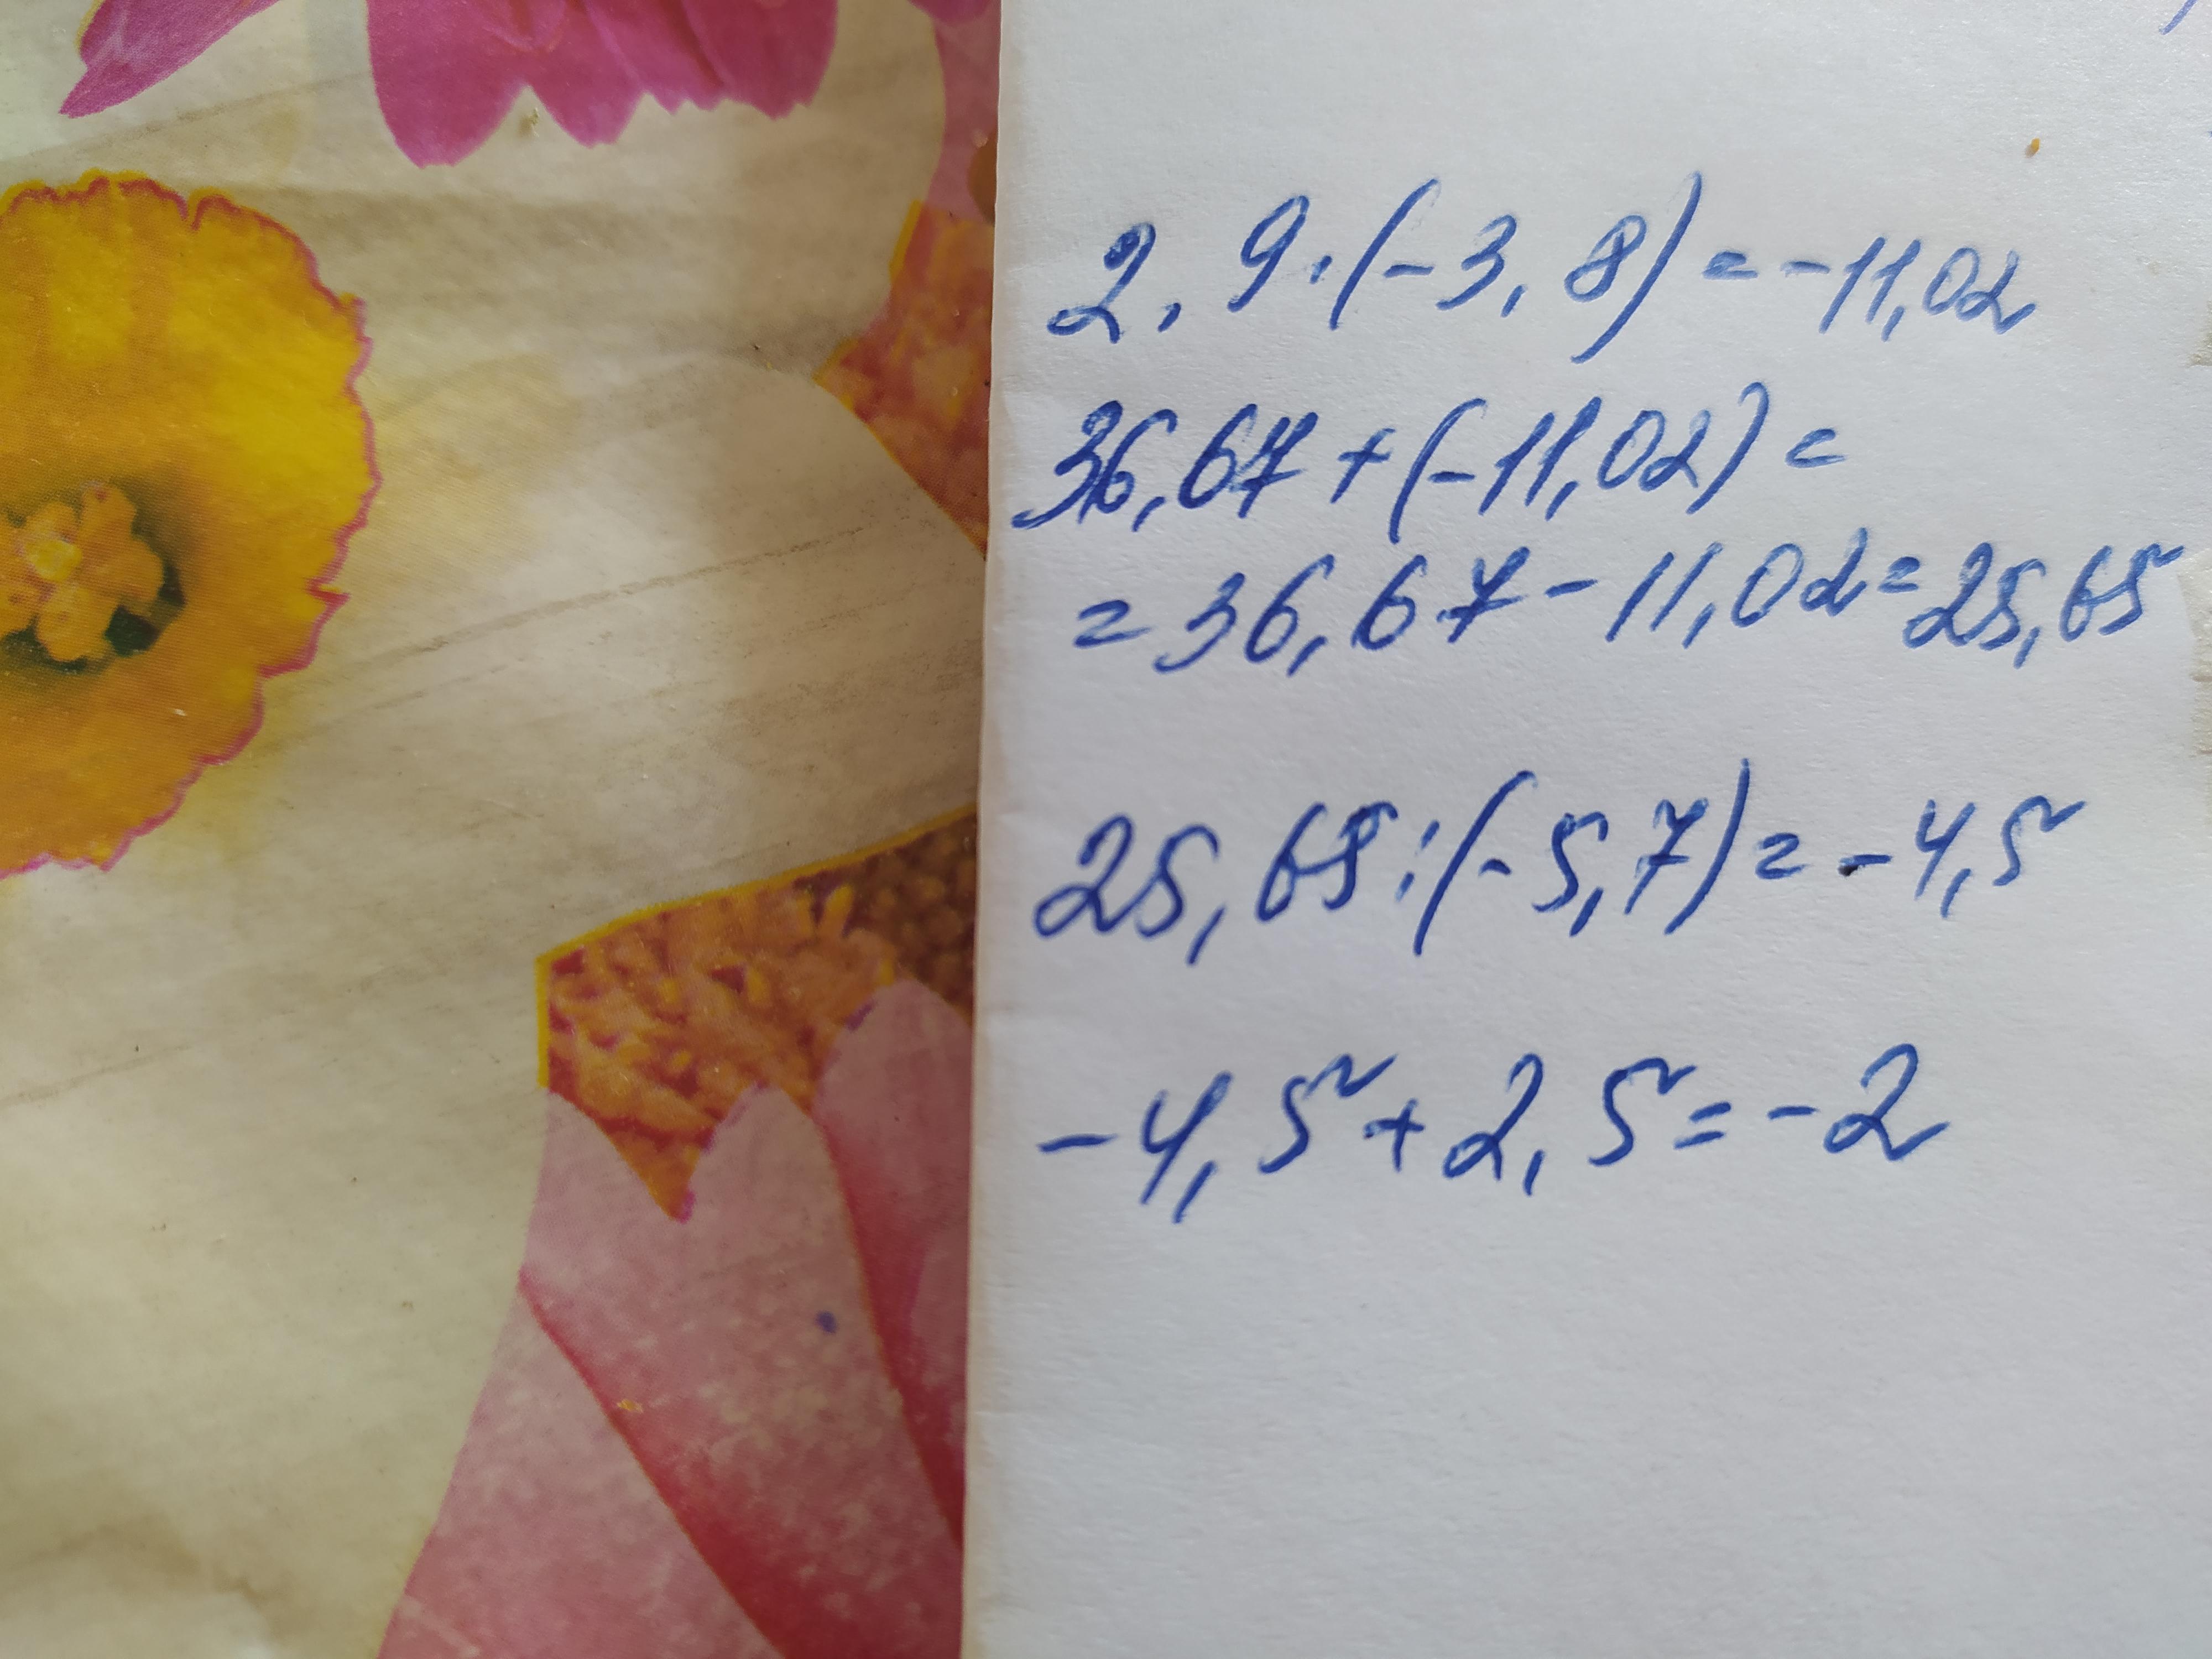 2,9·(-3,8)=-11,02
36,67+(-11,02)=
=36,67-11,02=25,65
25,65:(-5,7)=-4,5
-4,5+2,5=-2